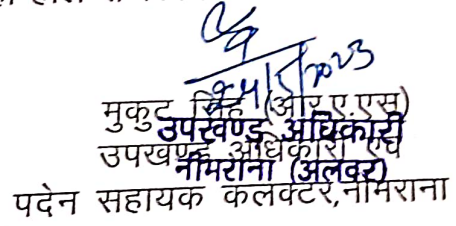 24/5/2023
मुकुट सिंह (आर.ए.एस)
उपखण्ड अधिकारी
उपखण्ड अधिकारी एवं
नीमराना (अलवर)
पदेन सहायक कलक्टर,नीमराना